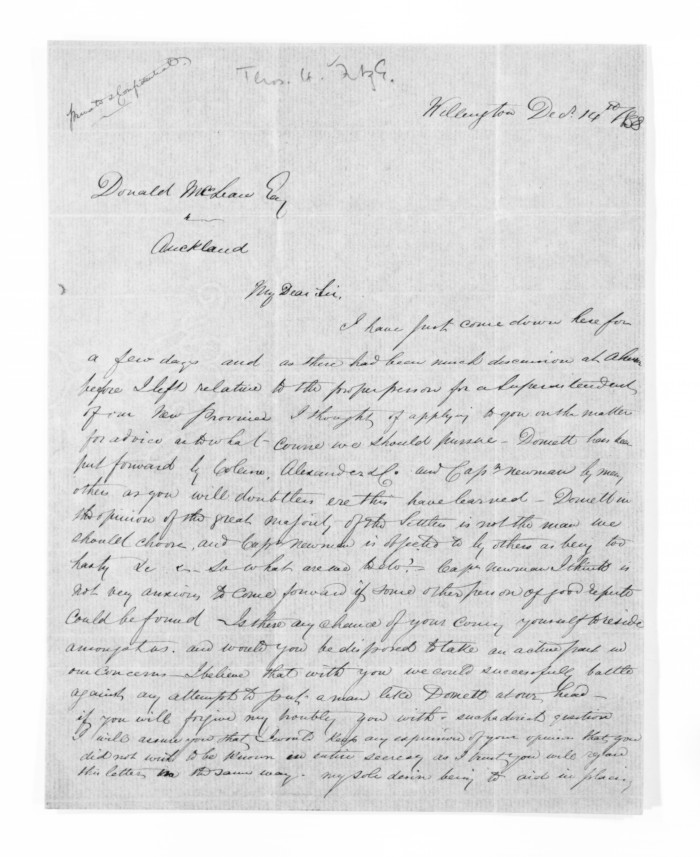 Private & Confidential
Thos. H. FitzG.
Wellington Decr. 14th/58
Donald McLean Esq
Auckland
My Dear Sir,
I have just come down here for
a few days and as there had been much discussion at Ahuriri
before I left relative to the proper person for a Superintendent
of our New Province I thought of applying to you on the matter
for advice as to what course we should pursue - Domett has been
put forward by Colenso, Alexander &Co and Captn Newman by many
others as you will doubtless ere this have learned - Domett in
the opinion of the great majority of the Settlers is not the man we
should choose, and Captn Newman is objected to by others as being too
hasty &c &c So what are we to do? - Captn Newman I think is
not very anxious to come forward if some other person of good repute
could be found - Is there any chance of your coming yourself to reside
amongst us. and would you be disposed to take an active part in
our concerns - I believe that with you we could successfully battle
against any attempt to put a man like Domett at our head -
if you will forgive my troubling you with such a direct question
I will assure you that I would keep any expression of your opinion that you
did not wish to be known in entire secresy as I trust you will regard
this letter in the same way. my sole desire being to aid in placing